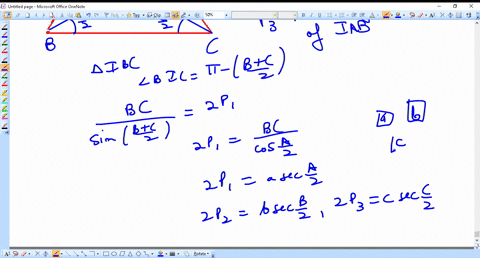 Untitled page - Microsoft OneNote
B/2 C/2 P3 of IAB
B C
△IBC
∠BIC = π - (B+C/2)
BC / sin(B+C/2) = 2P1
2P1 = BC / cos A/2
a b
c
2P1 = a sec A/2
2P2 = b sec B/2, 2P3 = c sec C/2
Rotate